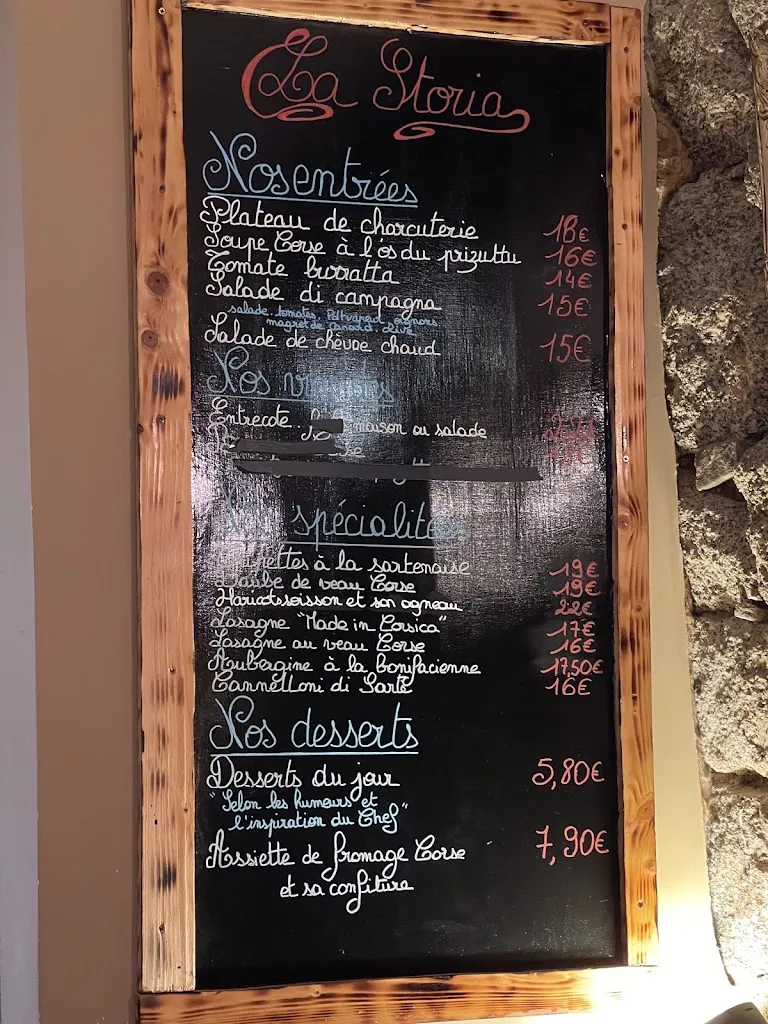 La Storia
Nos entrées
Plateau de charcuterie 18€
Soupe Corse à l'os du prizuttu 16€
Tomate burratta 14€
Salade di campagna 15€
salade. tomates. oignons
magret de Canard. olive
Salade de chèvre chaud 15€
Nos
Entrecote maison ou salade
Nos spécialités
à la sartenaise 19€
Daube de veau Corse 19€
Haricots soisson et son agneau 22€
Lasagne "Made in Corsica" 17€
Lasagne au veau Corse 16€
Aubergine à la bonifacienne 17,50€
Cannelloni di Sartè 16€
Nos desserts
Desserts du jour 5,80€
"Selon les humeurs et
l'inspiration du Chef"
Assiette de fromage Corse 7,90€
et sa confiture